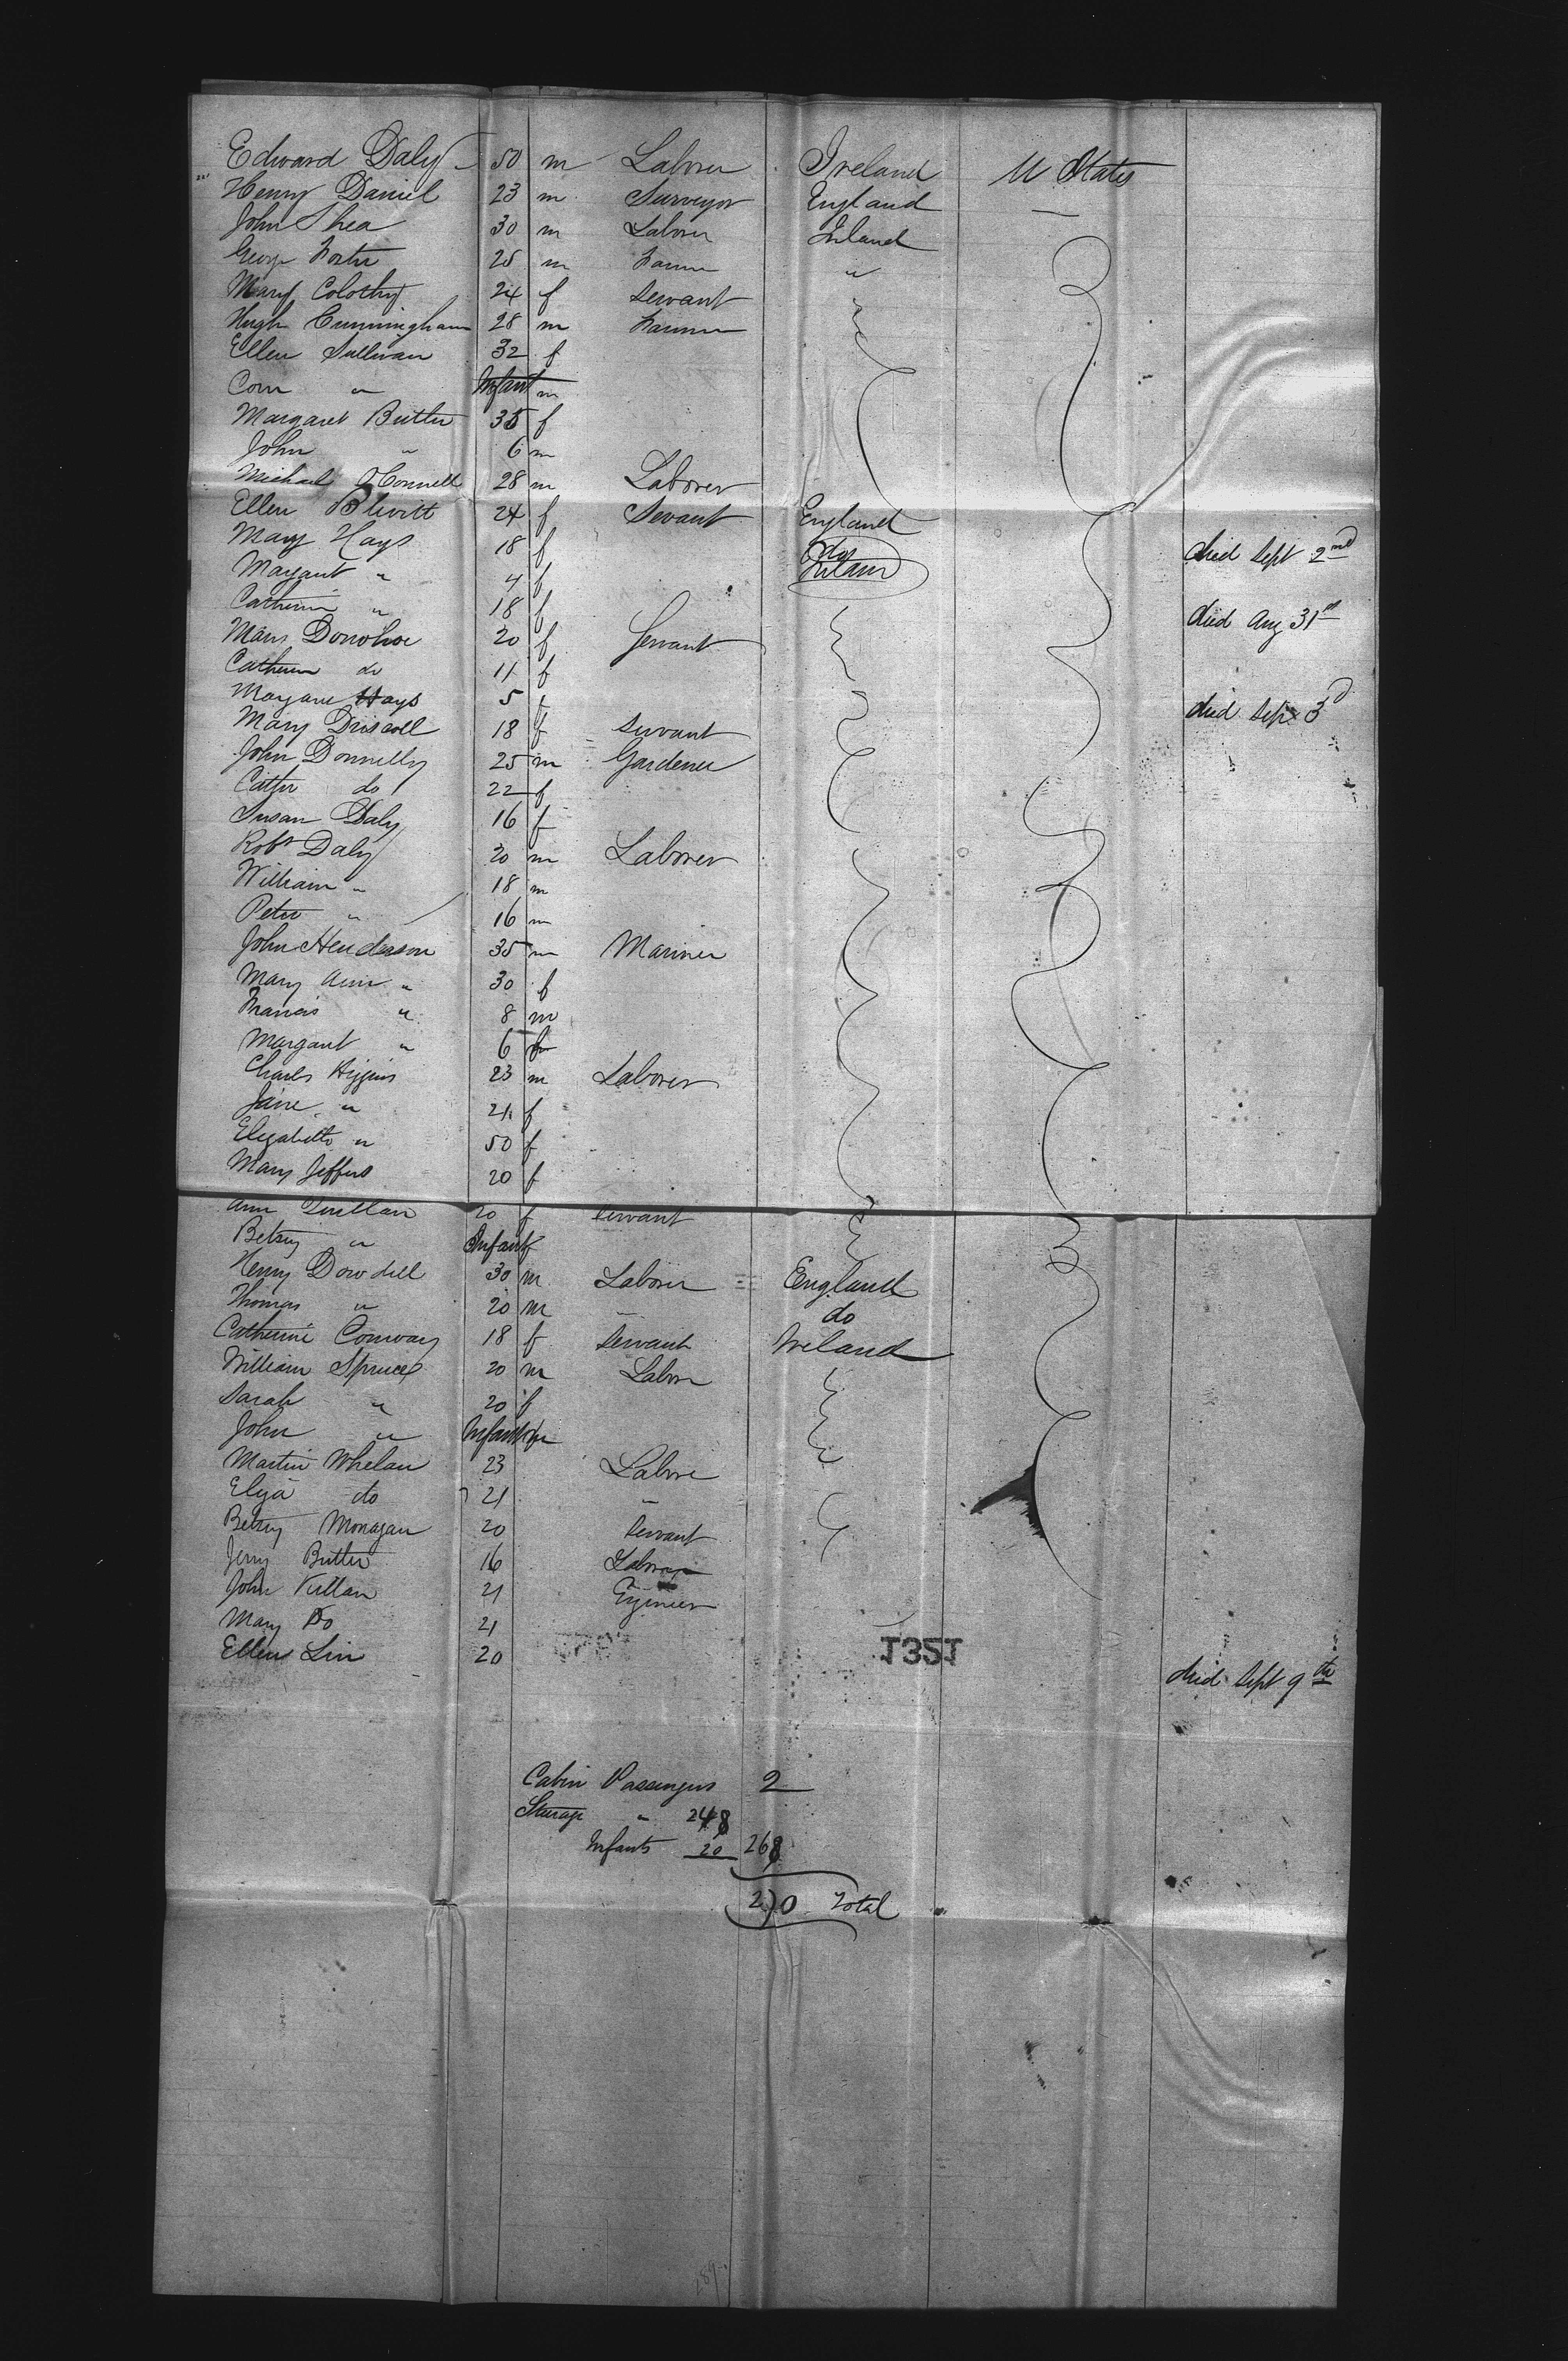 Edward Daly 50 m Laborer Ireland U States
Henry Daniel 23 m Surveyor England —
John Shea 30 m Laborer Ireland
George Foster 25 m Farmer "
Mary 24 f Servant
Hugh Cunningham 28 m Farmer
Ellen Sullivan 32 f
Corn " Infant m
Margaret Butler 35 f
John " 6 m
Michael OConnell 28 m Laborer
Ellen Blewitt 24 f Servant England
Mary Hays 18 f do died Sept 2nd
Margaret " 4 f
Catherine " 18 f died Aug 31st
Mary Donohoe 20 f Servant
Catherine do 11 f
Margaret Hays 5 f died Sep 3d
Mary Driscoll 18 f Servant
John Donnelly 25 m Gardener
Cathr do 22 f
Susan Daly 16 f
Robt Daly 20 m Laborer
William " 18 m
Peter " 16 m
John Henderson 35 m Mariner
Mary Ann " 30 f
Francis " 8 m
Margaret " 6 f
Charles Higgins 23 m Laborer
Jane " 21 f
Elizabeth " 50 f
Mary Jeffers 20 f
Ann 20 f Servant
Betsey " Infant f
Henry Dowdell 30 m Laborer England
Thomas " 20 m " do
Catherine Conway 18 f Servant Ireland
William Spruce 20 m Labore
Sarah " 20 f
John " Infant m
Martin Whelan 23 Labore
Eliza do 21 "
Betsey Monagan 20 Servant
Jerry Butler 16 Laborer
John 21 Engineer
Mary Do 21
Ellen Lin 20 died Sept 9th
1351
Cabin Passengers 2
Sterage " 248
Infants 20 268
270 Total